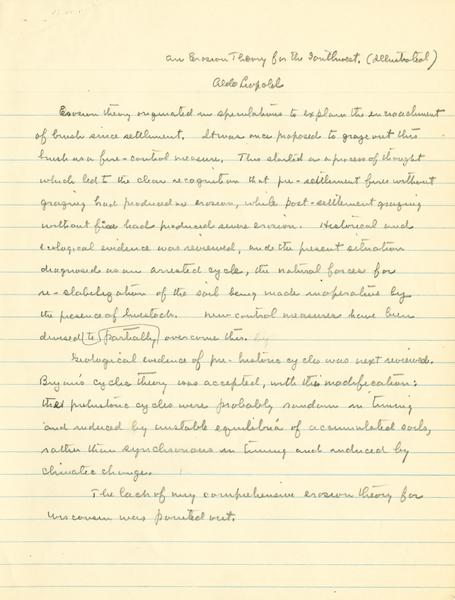 An Erosion Theory for the Southwest. (illustrated)
Aldo Leopold
Erosion theory originated in speculations to explain the encroachment
of brush since settlement. It was once proposed to graze out this
brush as a fire-control measure. This started as a process of thought
which led to the clear recognition that pre-settlement fires without
grazing had produced no erosion, while post-settlement grazing
without fire had produced severe erosion. Historical and
ecological evidence was reviewed, and the present situation
diagnosed as an arrested cycle, the natural forces for
re-stabilization of the soil being made inoperative by
the presence of livestock. New control measures have been
devised to partially overcome this. by
Geological evidence of pre-historic cycles was next reviewed.
Bryan's cyclic theory was accepted, with this modification:
that prehistoric cycles were probably random in timing
and induced by unstable equilibria of accumulated soils,
rather than synchronous in timing and induced by
climatic change.
The lack of any comprehensive erosion theory for
Wisconsin was pointed out.